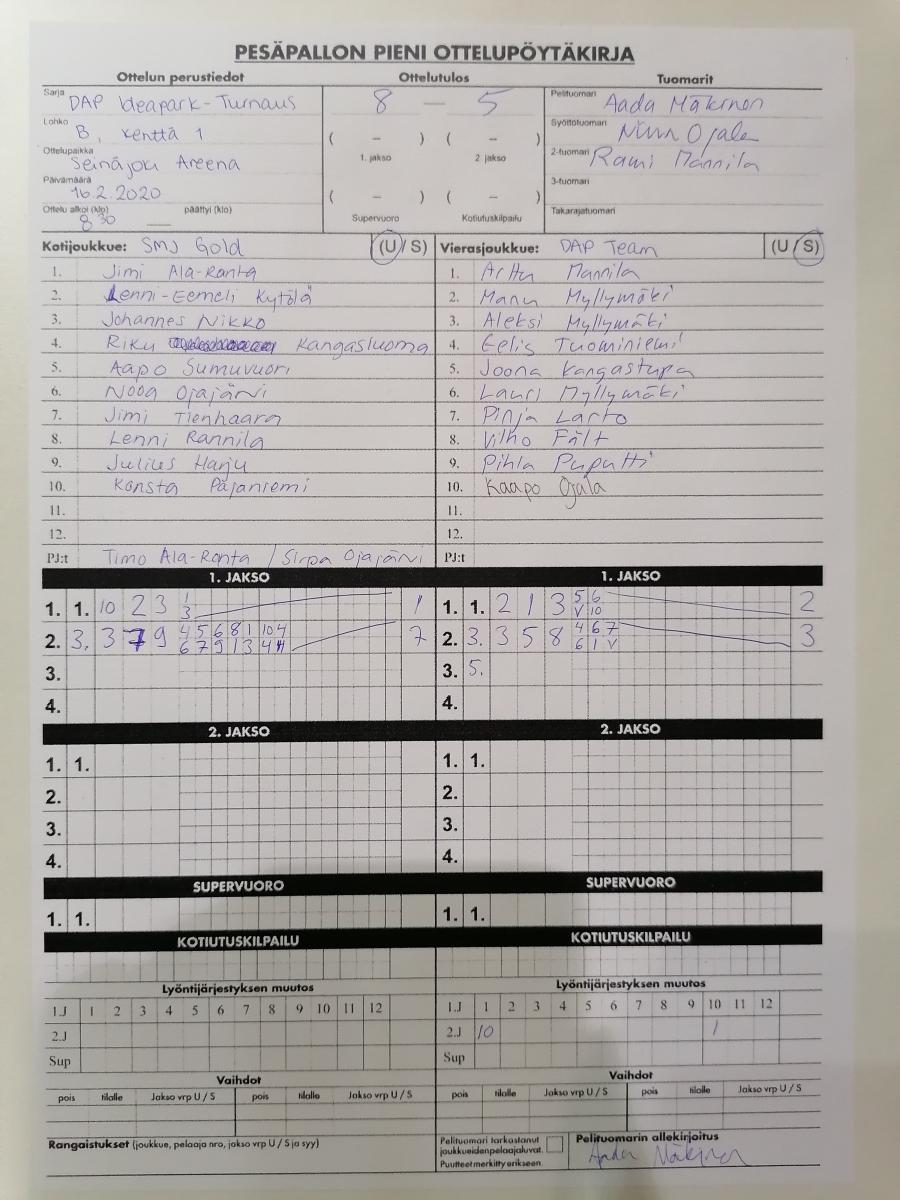 PESÄPALLON PIENI OTTELUPÖYTÄKIRJA
Ottelun perustiedot Ottelutulos Tuomarit
Sarja DAP Ideapark-Turnaus
Lohko B, kenttä 1
Ottelupaikka Seinäjoki Areena
Päivämäärä 16.2.2020
Ottelu alkoi (klo) 8 30 päättyi (klo)
8 — 5
( – ) ( – )
1. jakso 2. jakso
( – ) ( – )
Supervuoro Kotiutuskilpailu
Pelituomari Aada Mäkinen
Syöttötuomari Ojala
2-tuomari Rami Mannila
3-tuomari
Takarajatuomari
Kotijoukkue: SMJ Gold (U / S)
1. Jimi Ala-Ranta
2. Lenni-Eemeli Kytölä
3. Johannes Nikko
4. Riku Kangasluoma
5. Aapo Sumuvuori
6. Nooa Ojajärvi
7. Jimi Tienhaara
8. Lenni Rannila
9. Julius Harju
10. Konsta Päjäniemi
11.
12.
PJ:t Timo Ala-Ranta / Sirpa Ojajärvi
Vierasjoukkue: DAP Team (U / S)
1. Arttu Mannila
2. Manu Myllymäki
3. Aleksi Myllymäki
4. Eelis Tuominiemi
5. Joona Kangastupa
6. Lauri Myllymäki
7. Pinja Larto
8. Vilho Fält
9. Pihla Puputti
10. Kaapo Ojala
11.
12.
PJ:t
1. JAKSO
1. 1. 10 2 3 1 1
3
2. 3. 3 7 9 4 5 6 8 1 10 4 7
6 7 9 1 3 4
3.
4.
1. JAKSO
1. 1. 2 1 3 5 6 2
V 10
2. 3. 3 5 8 4 6 7 3
6 1 V
3. 5.
4.
2. JAKSO
1. 1.
2.
3.
4.
2. JAKSO
1. 1.
2.
3.
4.
SUPERVUORO
1. 1.
SUPERVUORO
1. 1.
KOTIUTUSKILPAILU
KOTIUTUSKILPAILU
Lyöntijärjestyksen muutos
1.J 1 2 3 4 5 6 7 8 9 10 11 12
2.J
Sup
Lyöntijärjestyksen muutos
1.J 1 2 3 4 5 6 7 8 9 10 11 12
2.J 10 1
Sup
Vaihdot
pois tilalle Jakso vrp U / S pois tilalle Jakso vrp U / S
Vaihdot
pois tilalle Jakso vrp U / S pois tilalle Jakso vrp U / S
Rangaistukset (joukkue, pelaaja nro, jakso vrp U / S ja syy)
Pelituomari tarkastanut
joukkueidenpelaajaluvat.
Puutteet merkitty erikseen.
Pelituomarin allekirjoitus
Aada Mäkinen